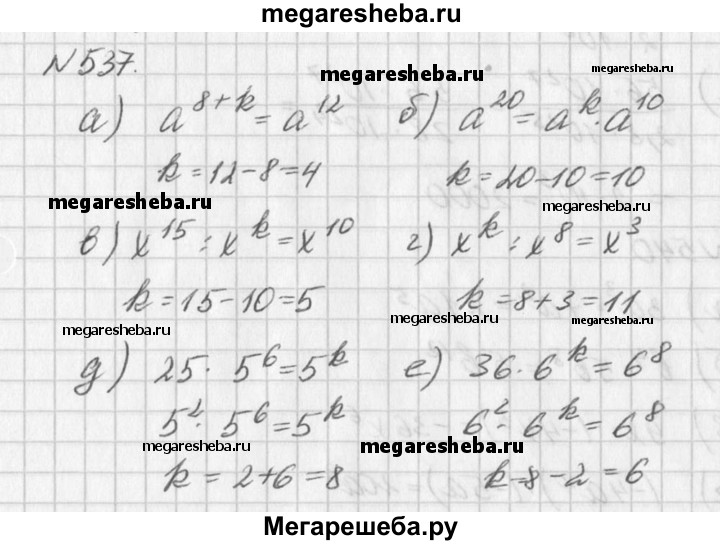 megaresheba.ru
№537.
megaresheba.ru
megaresheba.ru
а) a^{8+k} = a^{12} б) a^{20} = a^k · a^{10}
k = 12 - 8 = 4 k = 20 - 10 = 10
megaresheba.ru
megaresheba.ru
в) x^{15} : x^k = x^{10} г) x^k : x^8 = x^3
k = 15 - 10 = 5 k = 8 + 3 = 11
megaresheba.ru
megaresheba.ru
megaresheba.ru
д) 25 · 5^6 = 5^k е) 36 · 6^k = 6^8
5^2 · 5^6 = 5^k 6^2 · 6^k = 6^8
megaresheba.ru
megaresheba.ru
k = 2 + 6 = 8 k = 8 - 2 = 6
Мегарешеба.ру